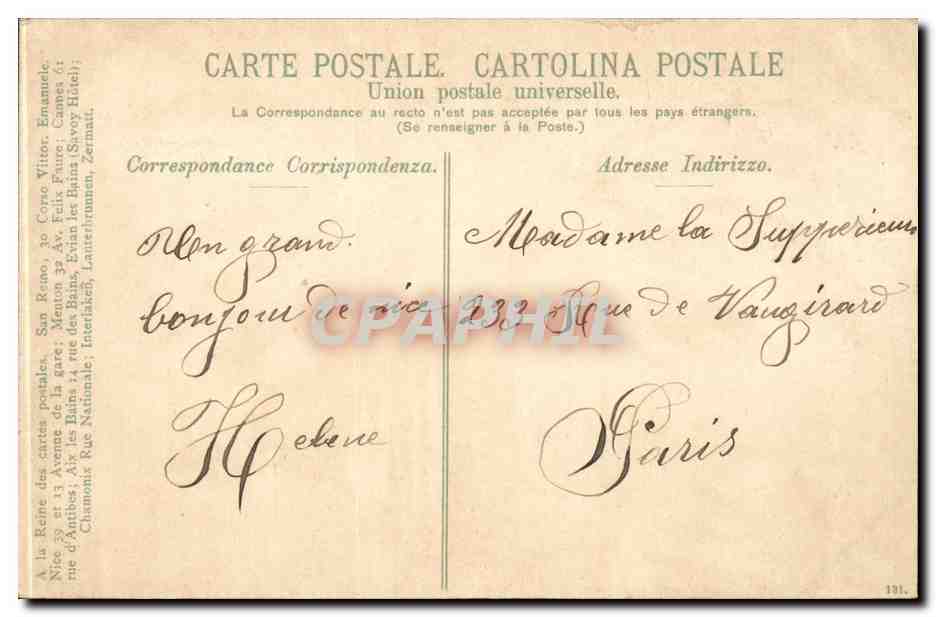 CARTE POSTALE. CARTOLINA POSTALE
Union postale universelle.
La Correspondance au recto n'est pas acceptée par tous les pays étrangers.
(Se renseigner à la Poste.)
Correspondance Corrispondenza.
Adresse Indirizzo.
Un grand.
bonjour de nice
Helene
Madame la Supperieure
233 Rue de Vaugirard
Paris
A la Reine des cartes postales. San Remo, 30 Corso Vittor. Emanuele.
Nice 39 et 13 Avenue de la gare; Menton 32 Av. Felix Faure; Cannes 61
rue d'Antibes; Aix les Bains 14 rue des Bains, Evian les Bains (Savoy Hôtel);
Chamonix Rue Nationale; Interlaken, Lauterbrunnen, Zermatt.
131.
CPAPHIL